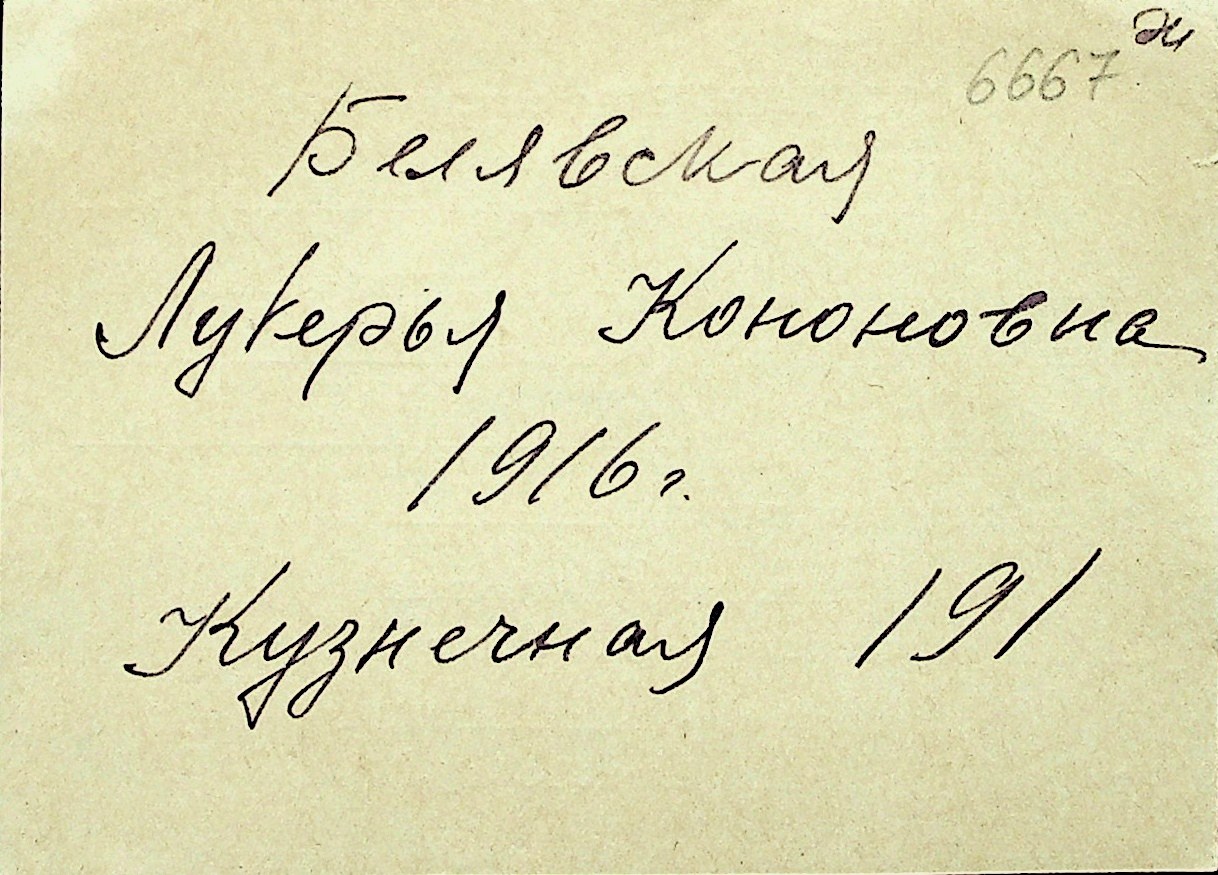 6667
Белявская
Лукерья Кононовна
1916 г.
Кузнечная 191